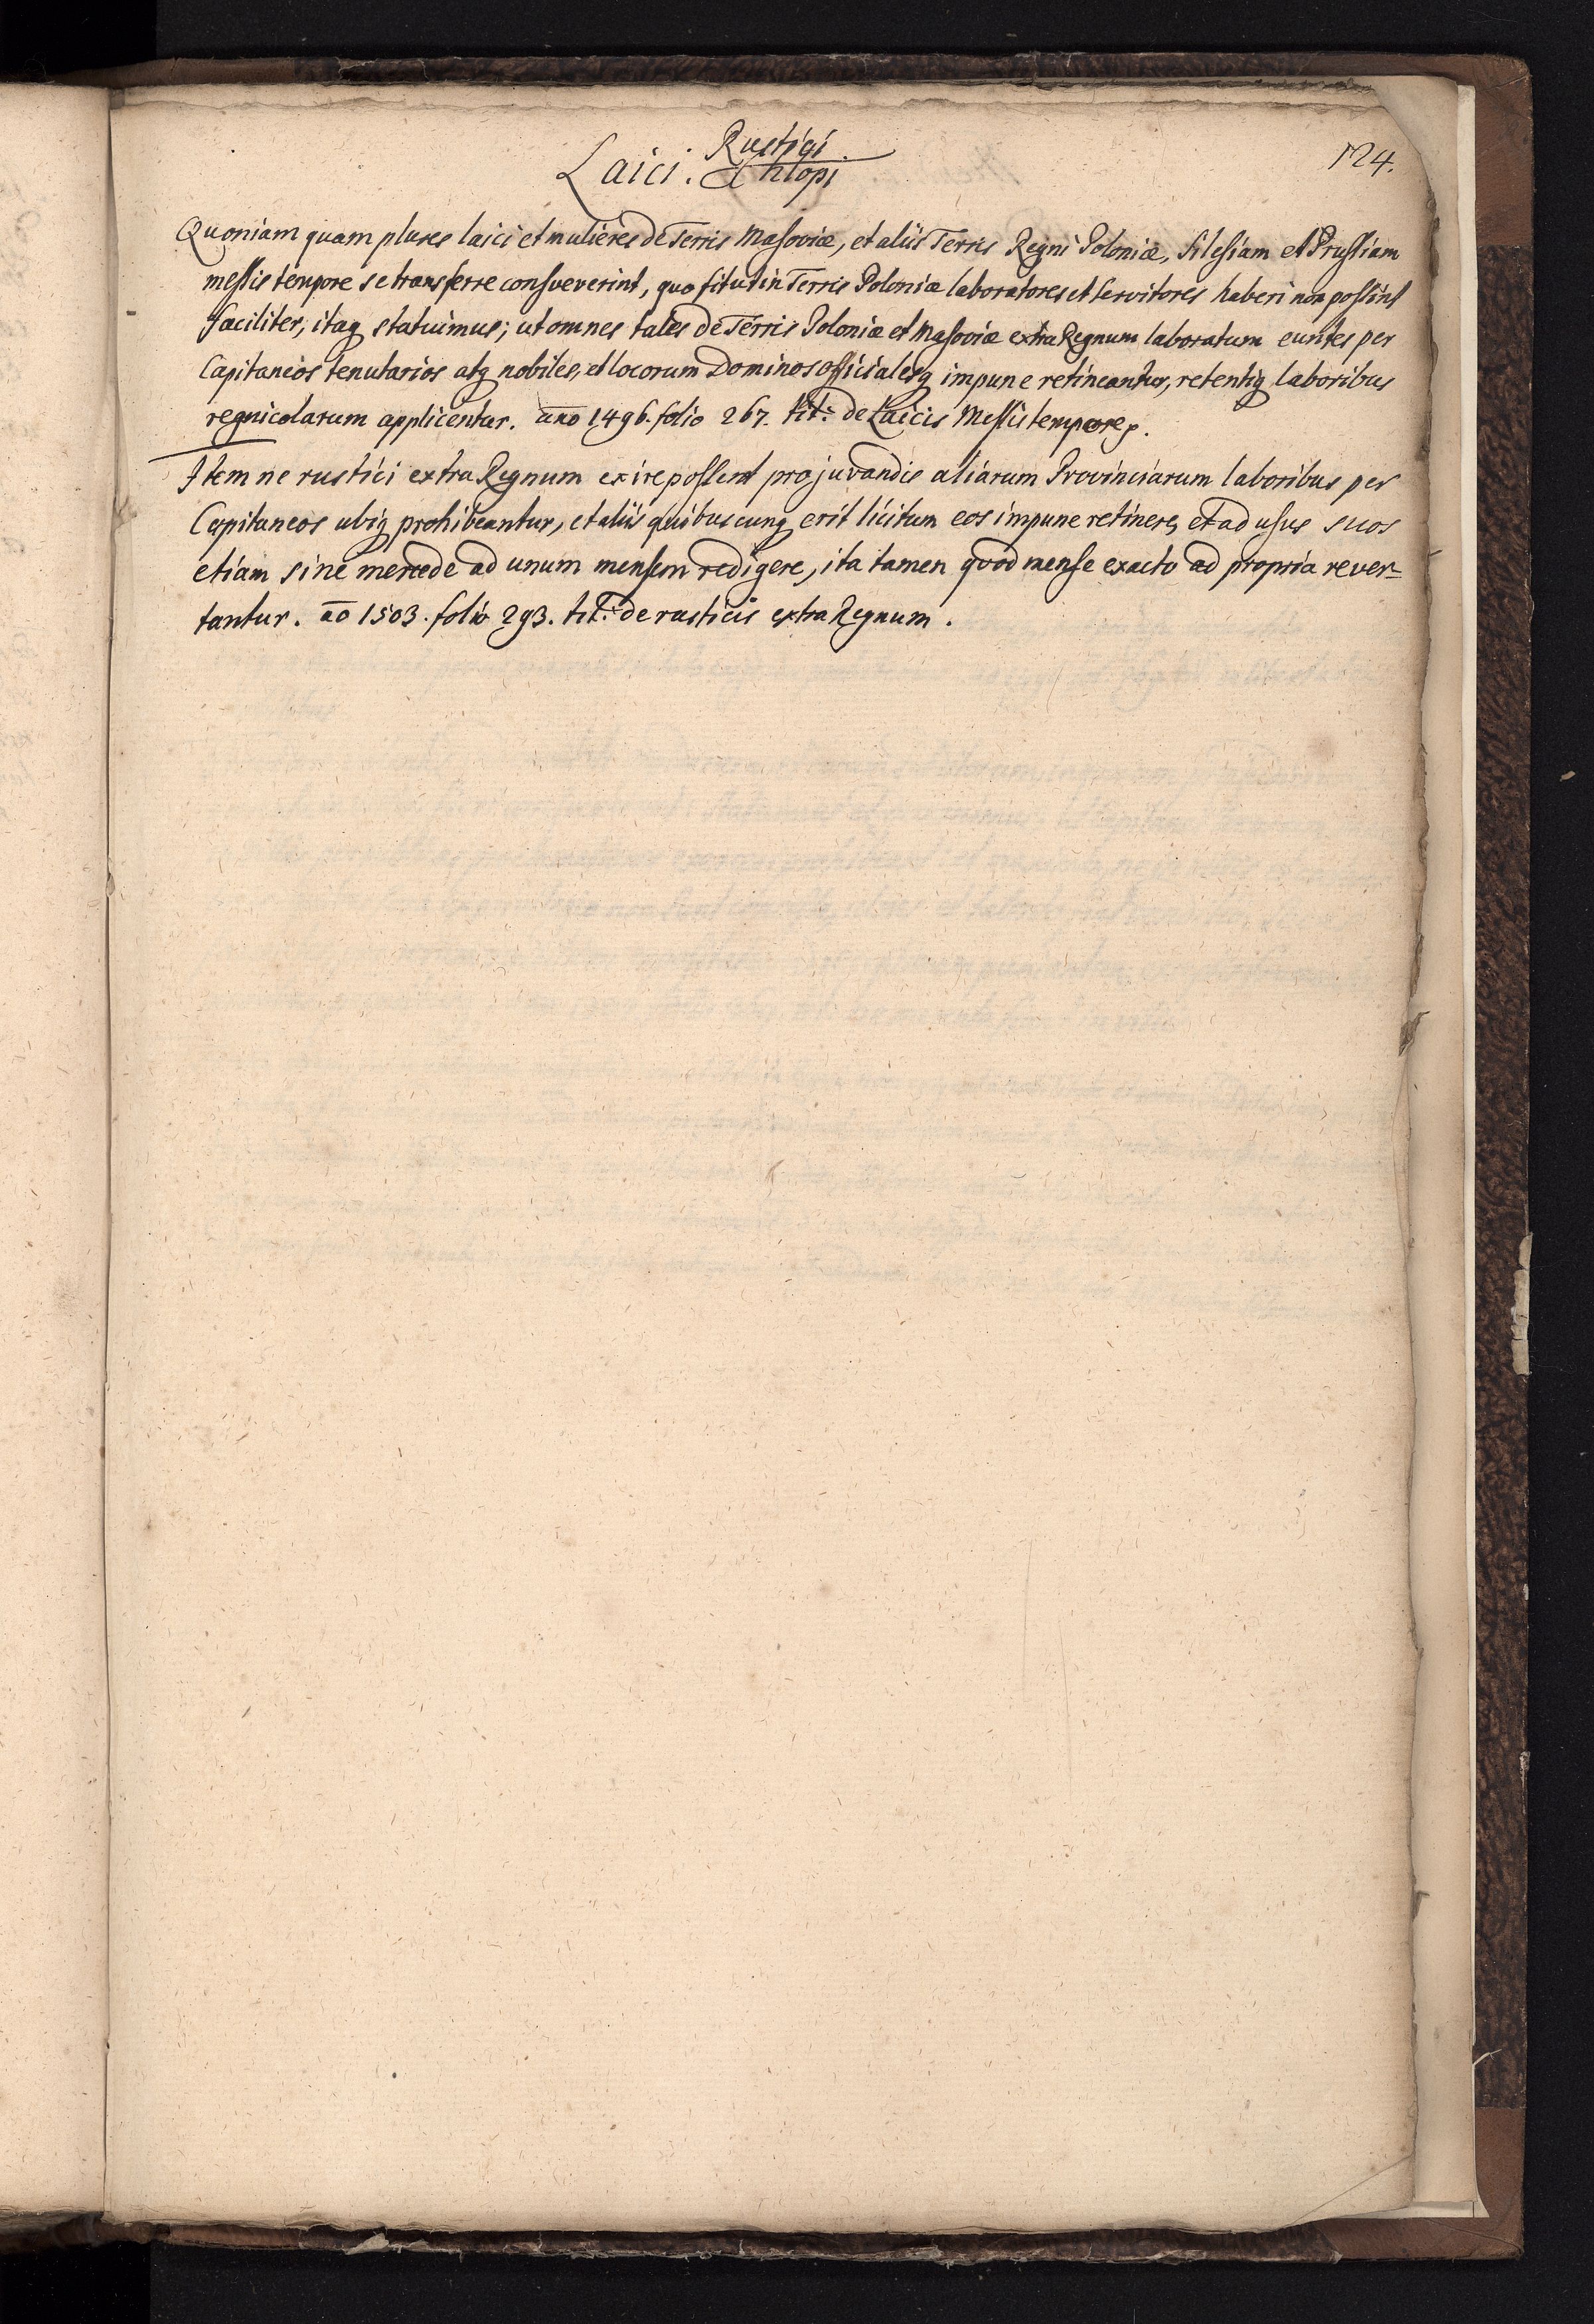 124.
Laici. Rustigi.
Chlopi
Quoniam quam plures laici et mulieres de Terris Masoviæ, et aliis Terris Regni Poloniæ, Silesiam et Prussiam
messis tempore se transferre consueverint, quo fit ut in Terris Poloniæ laboratores et servitores haberi non possint
faciliter, itaq statuimus; ut omnes tales de Terris Poloniæ et Masoviæ extra Regnum laboratum euntes per
Capitaneos tenutarios atq nobiles, et locorum Dominos officialesq impune retineantur, retentiq laboribus
regnicolarum applicentur. ano 1496. folio 267. tit: de Laicis Messis tempore.
Item ne rustici extra Regnum exire possent pro juvandis aliarum Provinciarum laboribus per
Capitaneos ubiq prohibeantur, et aliis quibuscunq erit licitum eos impune retinere, et ad usus suos
etiam sine mercede ad unum mensem redigere, ita tamen quod mense exacto ad propria rever=
tantur. ao 1503. folio 293. tit: de rusticis extra Regnum.